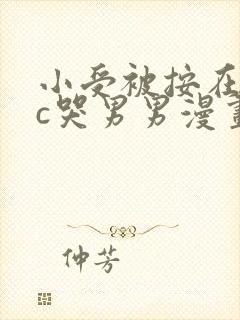 小受被按在
c哭男男漫畫
仲芳